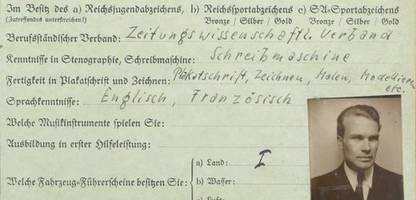 Im Besitz des a) Reichsjugendabzeichens, b) Reichssportabzeichens c) SA-Sportabzeichens
(Zutreffendes unterstreichen!) Bronze / Silber / Gold Bronze / Silber / Gold
Berufsständischer Verband: Zeitungswissenschaftl. Verband
Kenntnisse in Stenographie, Schreibmaschine: Schreibmaschine
Fertigkeit in Plakatschrift und Zeichnen: Plakatschrift, Zeichnen, Malen, Modellieren
etc.
Sprachkenntnisse: Englisch, Französisch
Welche Musikinstrumente spielen Sie:
Ausbildung in erster Hilfeleistung:
a) Land: I
Welche Fahrzeug-Führerscheine besitzen Sie: b) Wasser:
c) Luft: